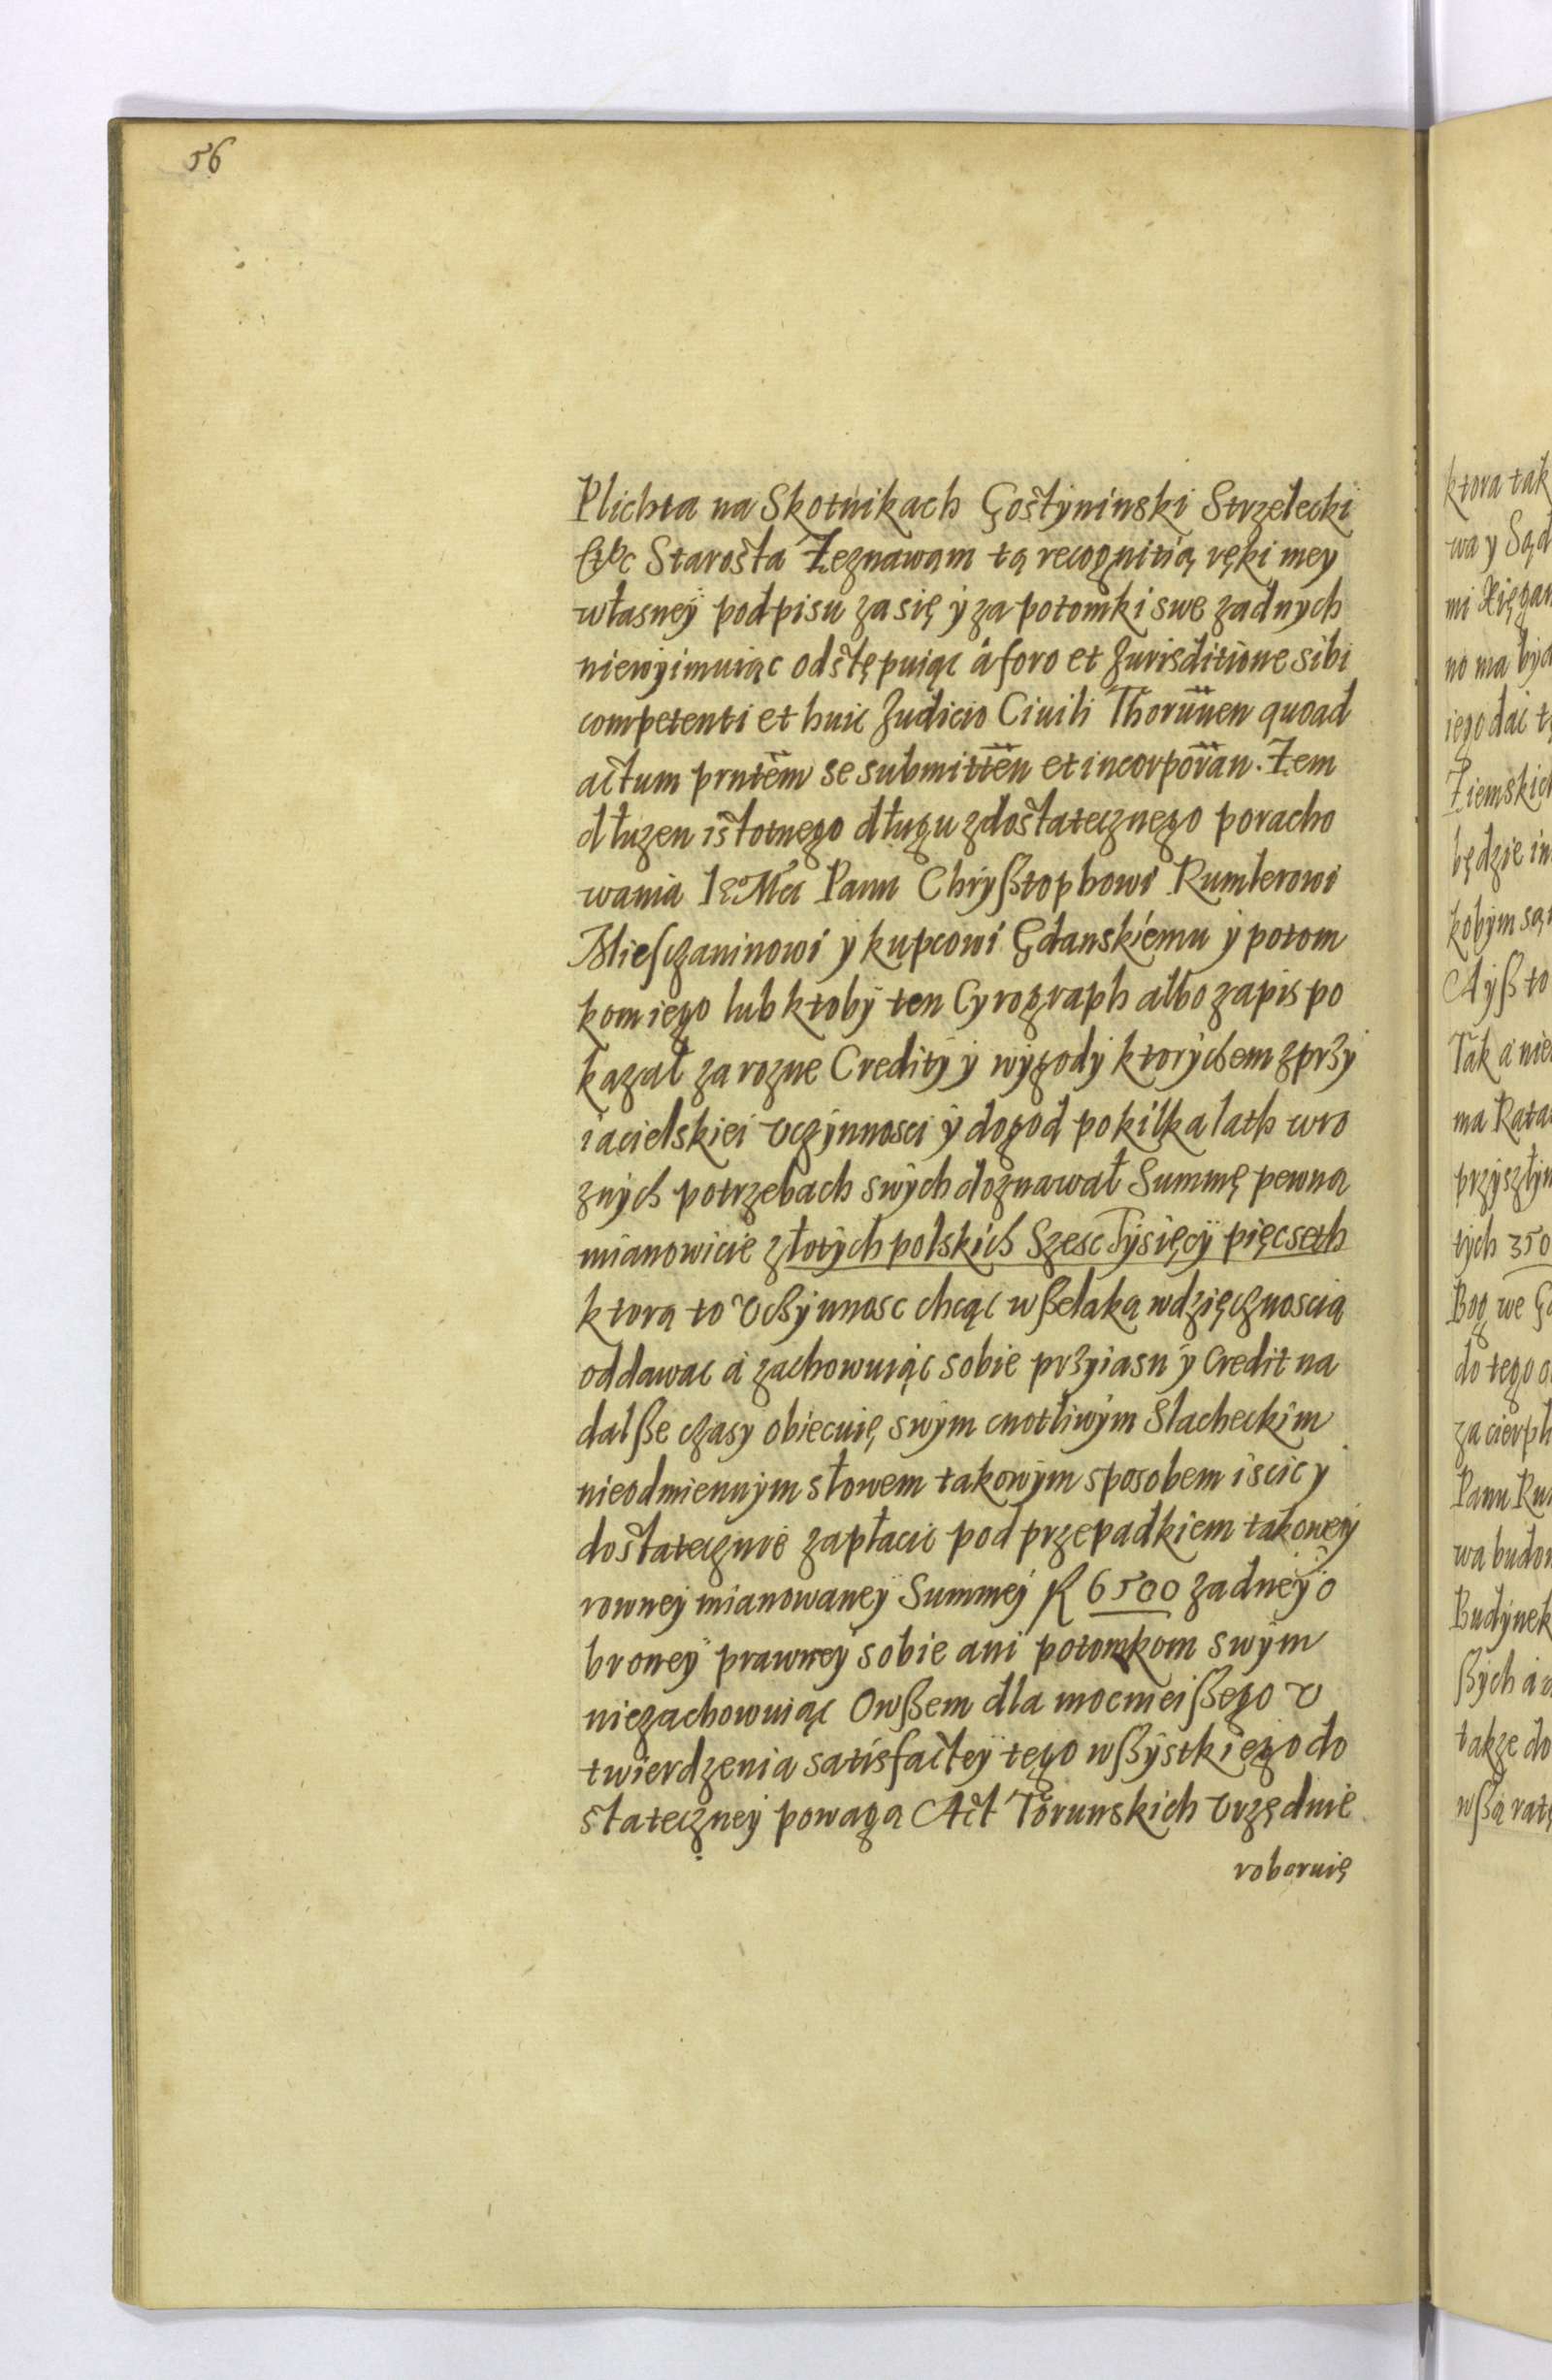 56
Plichta na Skotnikach Gostyninski Strzelecki
etc Starosta Zeznawam tą recognitią ręki mey
własney podpisu za się y za potomki swe zadnych
niewyimuiąc odstępuiąc á foro et Jurisditione sibi
competenti et huic Judicio Ciuili Thorunen quoad
actum prntem se submitten et incorporan. Zem
dłuzen istotnego długu z dostatecznego poracho
wania Ie° Mci Panu Chryßtophowi Rumlerowi
Miesczaninowi y kupcowi Gdanskiemu y potom
kom iego lub ktoby ten Cyrograph albo zapis po
kazał za rozne Credity y wygody ktorychem z przy
iacielskiei vczynnosci y dogod po kilka lath w ro
znych potrzebach swych doznawał Summę pewna
mianowicie złotych polskich Szesc Tysięcy pięcseth
ktorą to Vczynnosc chcąc wßelaką wdzięcznoscią
oddawac á zachowuiąc sobie przyiasn y Credit na
dalße czasy obiecuię swym cnotliwym Slacheckim
nieodmiennym słowem takowym sposobem iscic y
dostatecznie zapłacic pod przepadkiem takowey
rowney mianowaney Summey R 6500 zadney o
broney prawney sobie ani potomkom swym
niezachowuiąc Owßem dla mocnieißego v
twierdzenia satisfactey tego wßystkiego do
stateczney powagą Act Torunskich Vrzędnie
roboruię
ktora tak
wa y Sąd
mi Xięgam
no ma byd
iego dac t
Ziemskich
będzie in
kobym są
Ayß to
Tak á nie
ma Rata
przyszłym
tych 350
Bog we G
do tego o
za cierpl
Panu Rum
wa budow
Budynek
ßych á
takze do
wßą ratę